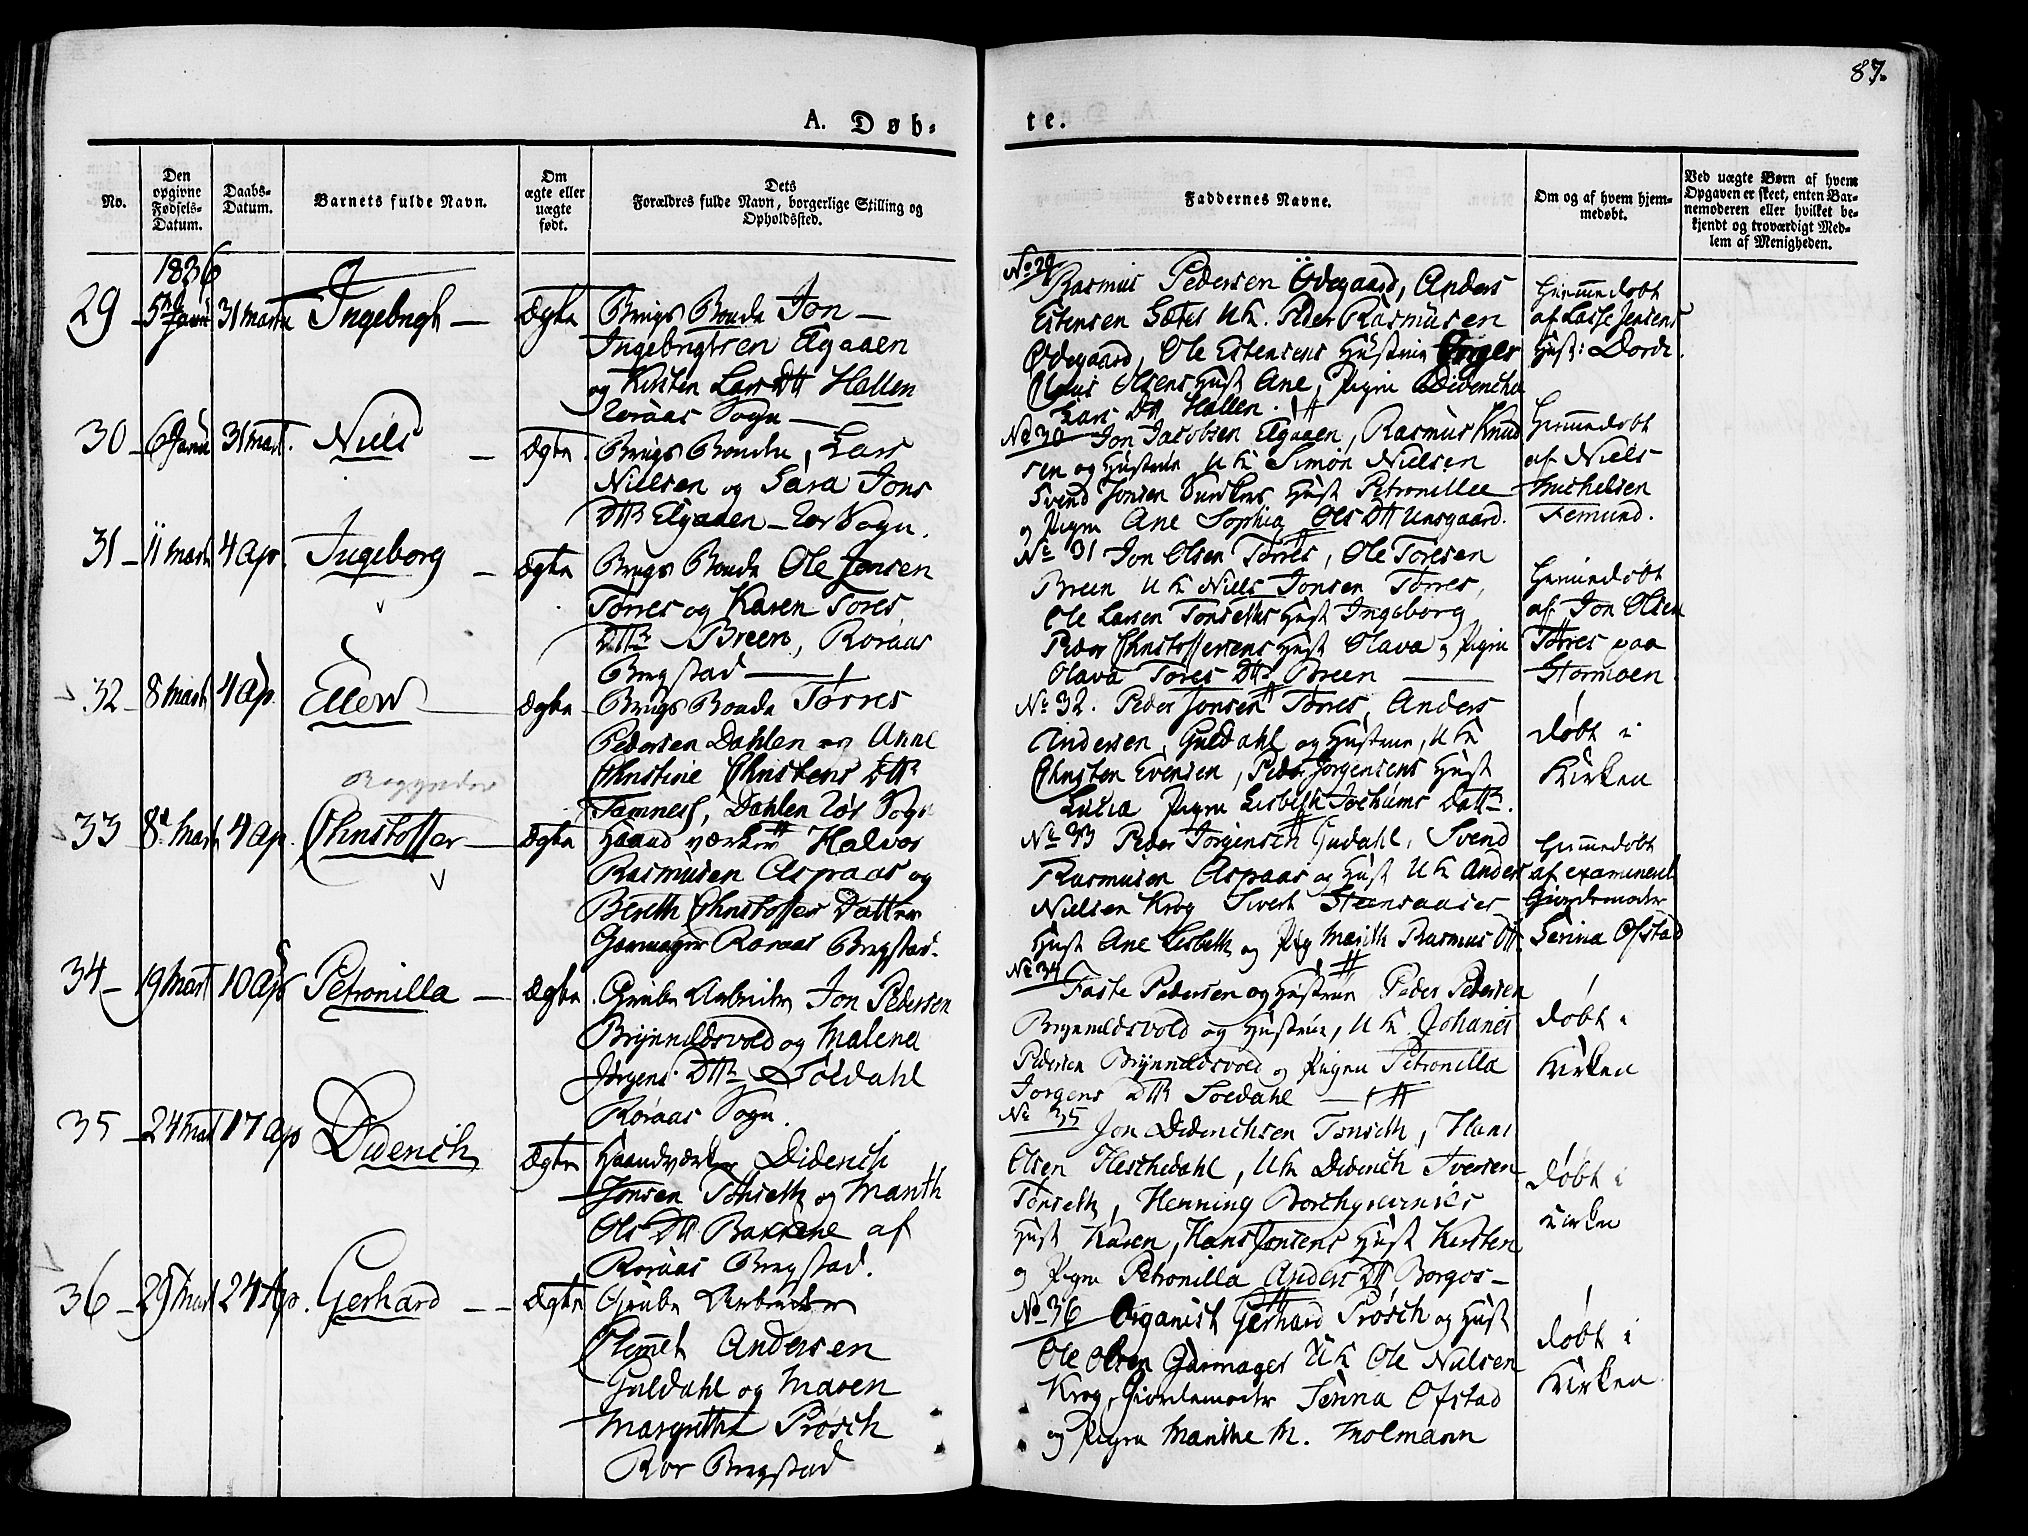 87.
A. Døb-
te.
No.
Den opgivne Fødsels-Datum.
Daabs-Datum.
Barnets fulde Navn.
Om ægte eller uægte født.
Dets Forældres fulde Navn, borgerlige Stilling og Opholdssted.
Faddernes Navne.
Om og af hvem hjemmedøbt.
Ved uægte Børn af hvem Opgaven er skeet, enten Barnemoderen eller hvilket bekjendt og troværdigt Medlem af Menigheden.
1836
29 5te Janu 31 marts Ingebrigt Ægte Brugs Bonde Jon
Ingebrigtsen Elgaaen
og Kirsten Lars Dtt Hallen
Röraas Sogn
No 29
Rasmus Pedersen Ödegaard, Anders
Estensen Sæter UK. Peder Rasmusen
Ødegaard, Ole Estensens Hustrue
Olsens Hust Ane, Pigen Didericha
Lars Dtt Hallen.
Hiemmedøbt
af Lasse Jensens
Hust: Dorde.
30 6 Janu 31 mart. Niels Ægte Brugs Bonde, Lars
Nielsen og Sara Jons
Dttr Elgaaen Rør Sogn.
No 30 Jon Jacobsen Elgaaen, Rasmus Knud
sen og Hustrue UK Simon Nielsen
Svend Jonsen Hust Petronille
og Pigen Ane Sophia Ols Dtt Unsgaard.
Hiemmedøbt
af Niels
Michelsen
Femund.
31 11 mart 4 Ap. Ingeborg Ægte Brugs Bonde Ole Jonsen
Torres og Karen Tores
Dttr Breen, Roraas
Bergstad
No 31 Jon Olsen Torres, Ole Toresen
Breen UK Niels Jonsen Torres,
Ole Larsen Tonseths Hust Ingeborg
Peder Christoffersens Hust Olava og Pigen
Olava Tores Dttr Breen
Hiemmedøbt
af Jon Olsen
Torres paa
Stormoen
32 8 mart 4 Ap. Ellen Ægte Brugs Bonde Tørres
Pedersen Dahlen og Anne
Christine Christens Dttr
Tamness, Dahlen Rör Sogn
No 32. Peder Jonsen Torres, Anders
Andersen, Guldahl og Hustrue, UK
Christen Evensen, Peder Jorgensens Hust
Lucia Pigen Lisbeth Jochums Dattr.
Døbt i
Kirken
33 8d mart 4 Ap. Christoffer Ægte Haandværker Halvor
Rasmusen Aspaas og
Bereth Christoffer Datter
Garmager Roraas Bergstad.
No 33 Peder Jorgensen Gudahl, Svend
Rasmusen Aspaas og Hust UK Anders
Nielsen Krog Sivert Steensaases
Hust Ane Lisbeth og Pig Marith Rasmus Dtt.
Hiemmedøbt
af examineret
Giordemoder
Serina Ofstad
34 19 Mart 10 Ap Petronilla Ægte Grube Arbeider Jon Pedersen
Brynnildsvold og Malena
Jörgens Dttr Soldahl
Röraas Sogn.
No 34
Faste Pedersen og Hustrue Peder Pedersen
Brynnildsvold og Hustrue, UK Johanes
Pedersen Brynnildsvold og Pigen Petronilla
Jorgens Dttr Soldahl
Døbt i
Kirken
35 24 Mart 17 Ap Diderich Ægte Haandværker Diderich
Jonsen Tönseth og Marith
Ols Dtt Bakkene af
Roraas Bergstad.
No 35
Jon Diderichsen Tonseth, Hans
Olsen Heschedahl, UK Diderich Iversen
Tönseth, Henning Borchgrevinks
Hust Karen, Hans Jonsens Hust Kirsten
og Pigen Petronilla Anders Dtt Borgos
Døbt i
Kirken
36 29 Mart 24 Ap. Gerhard Ægte Grube Arbeider
Clemet Andersen
Guldahl og Maren
Margrethe Prösch
Rør Bergstad
No 36 Organist Gerhard Prösch og Hust
Ole Olsen Garmager UK Ole Nielsen
Krog, Giordemoder Serina Ofstad
og Pigen Marithe M. Molmann
Døbt i
Kirken